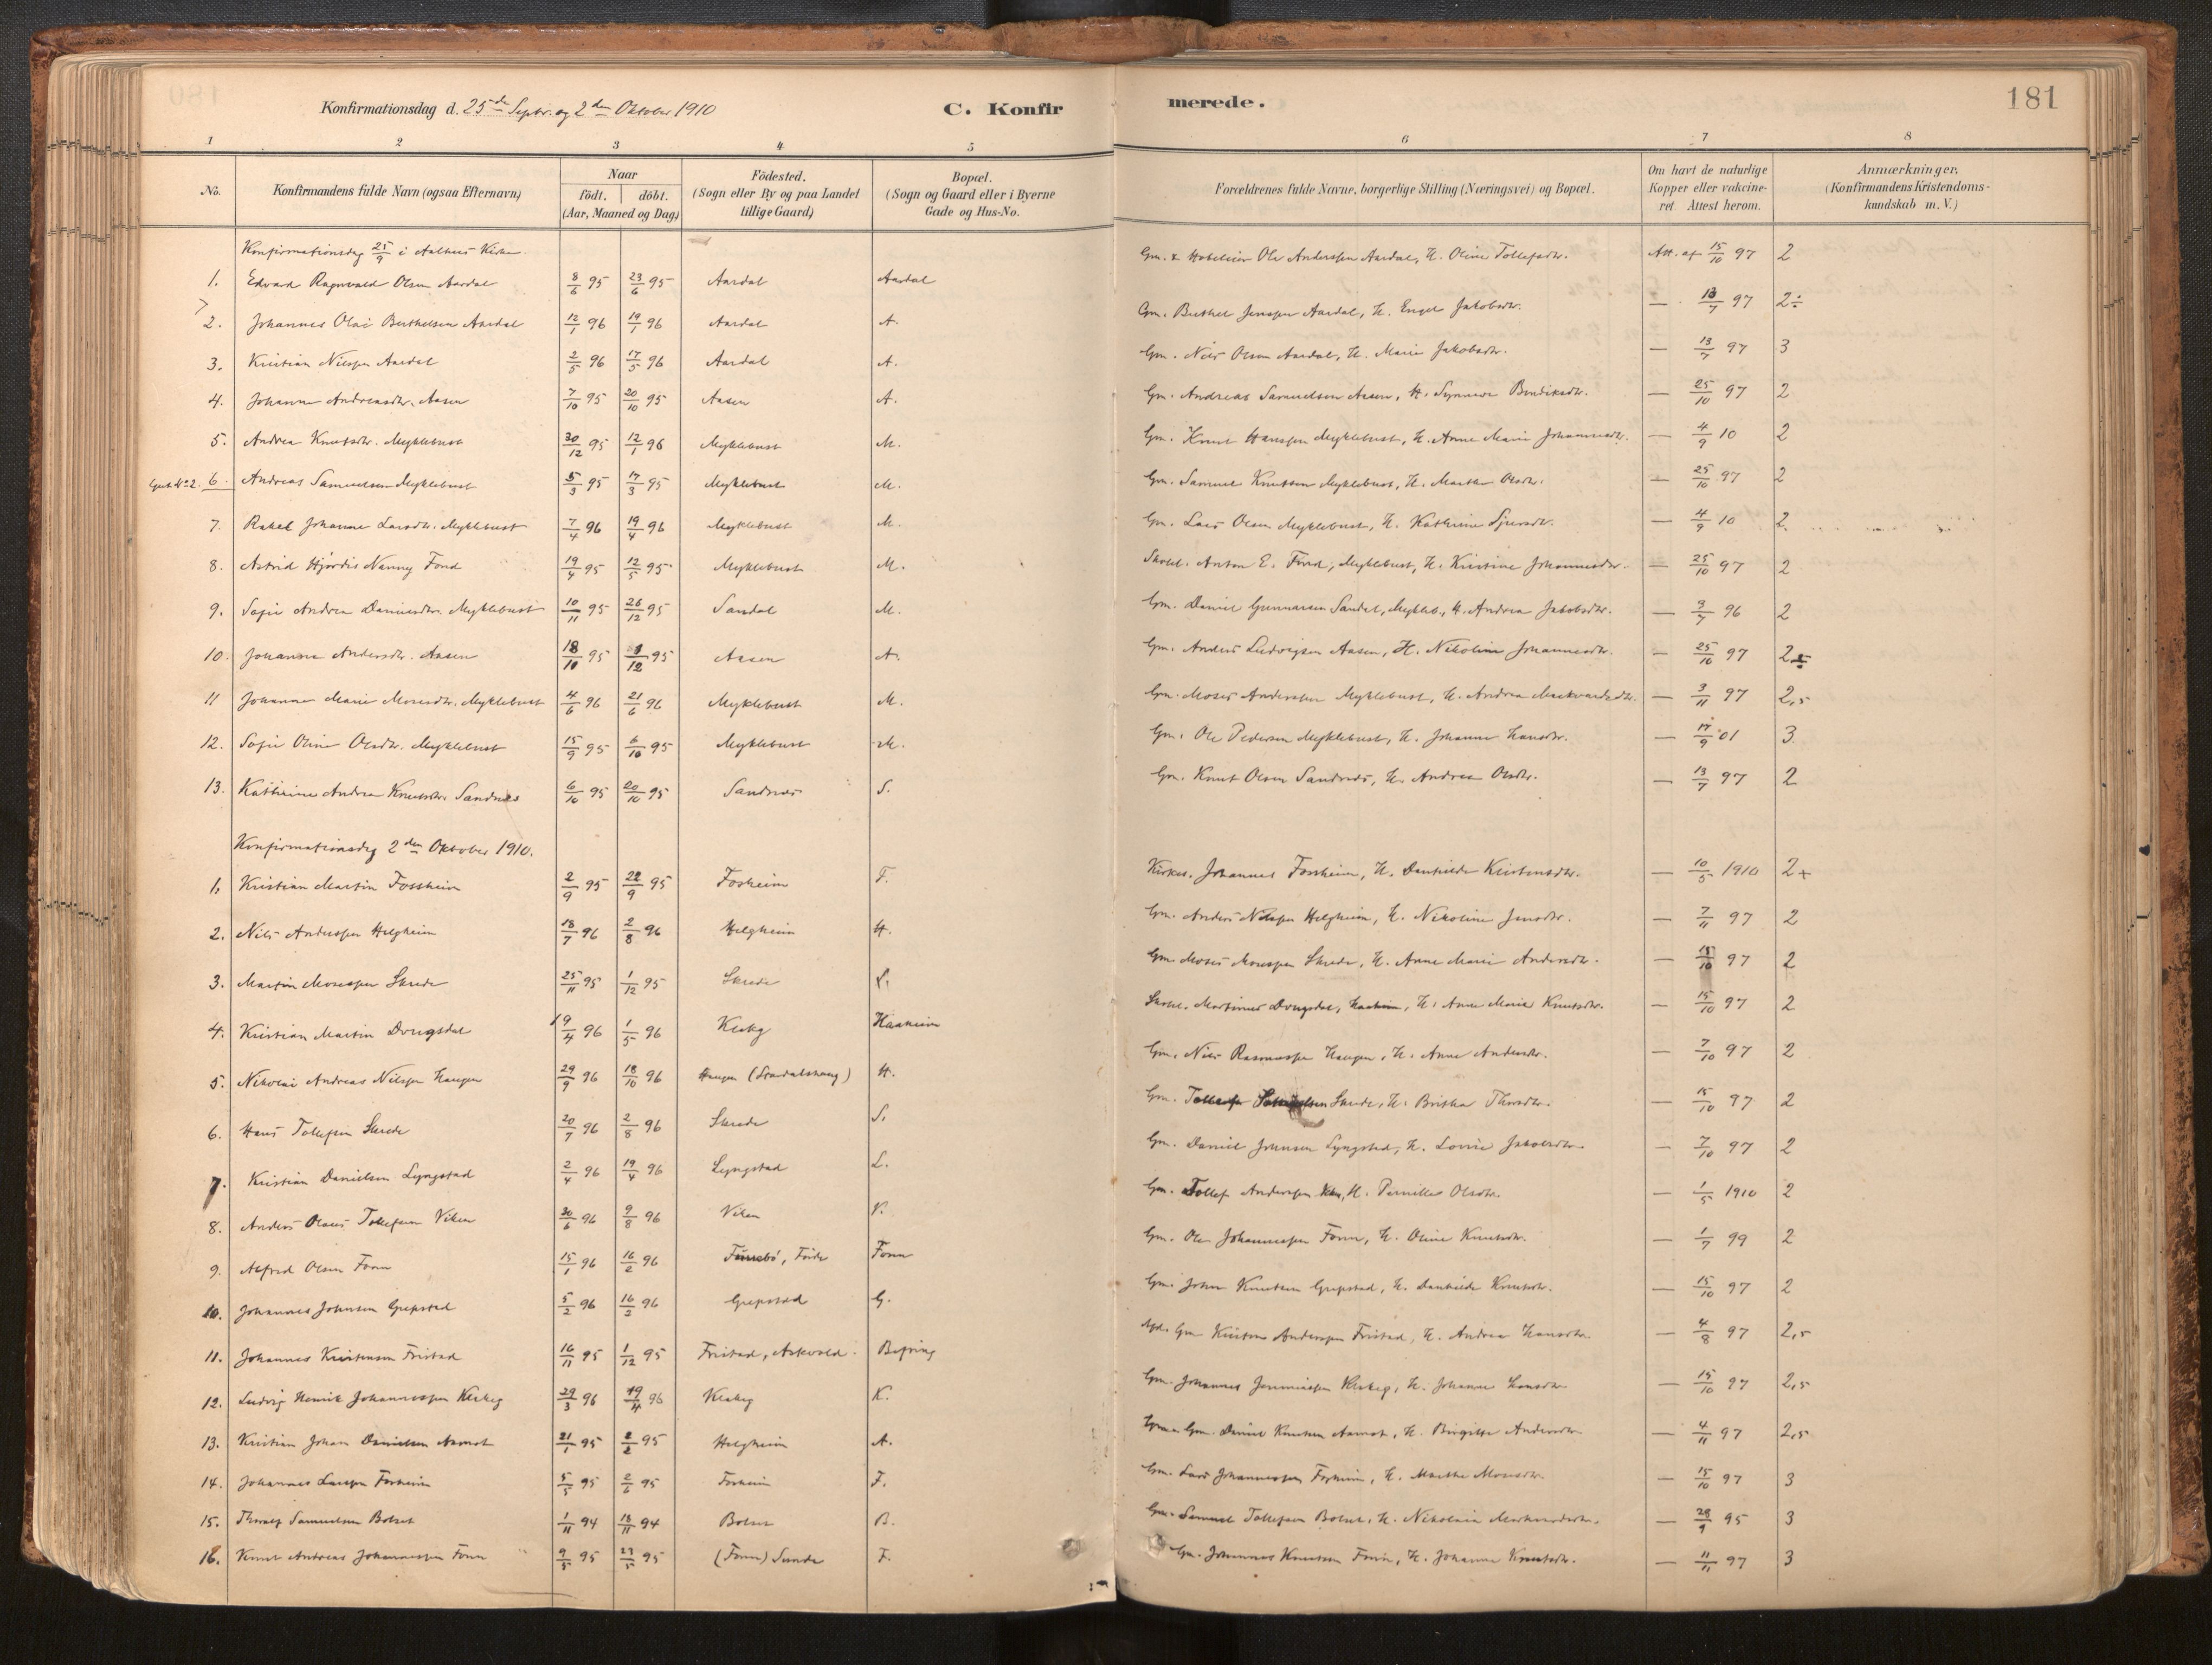 180
181
Konfirmationsdag d. 25de Septbr. og 2den Oktober 1910
C. Konfir
merede.
1 2 3 4 5 6 7 8
No. Konfirmandens fulde Navn (ogsaa Efternavn) Naar födt. döbt. (Aar, Maaned og Dag) Födested. (Sogn eller By og paa Landet tillige Gaard) Bopæl. (Sogn og Gaard eller i Byerne Gade og Hus-No. Forældrenes fulde Navne, borgerlige Stilling (Næringsvei) og Bopæl. Om havt de naturlige Kopper eller vakcineret. Attest herom. Anmærkninger. (Konfirmandens Kristendomskundskab m. V.)
Konfirmationsdag 25/9 i Aalhus Kirke.
1. Edvard Ragnvald Olsen Aardal 8/6 95 23/6 95 Aardal Aardal Gm. & Ole Anderssen Aardal, H. Oline Tollefsdtr. Att. af 15/10 97 2
2. Johannes Olai Berthelsen Aardal 12/1 96 19/1 96 Aardal A. Gm. Berthel Jenssen Aardal, H. Engel Jakobsdtr. — 13/7 97 2÷
3. Kristian Nilssen Aardal 2/5 96 17/5 96 Aardal A. Gm. Nils Olsen Aardal, H. Marie Jakobsdtr. — 13/7 97 3
4. Johanne Andreasdtr. Aasen 7/10 95 20/10 95 Aasen A. Gm. Andreas Samuelsen Aasen, H. Synneve Bendiksdtr. — 25/10 97 2
5. Andrea Knutsdtr. Myklebust 30/12 95 12/1 96 Myklebust M. Gm. Knut Hanssen Myklebust, H. Anne Marie Johannesdtr. — 4/9 10 2
6. Andreas Samuelsen Myklebust 5/3 95 17/3 95 Myklebust M. Gm. Samuel Knutsen Myklebust, H. Marthe Olsdtr. — 25/10 97 2
7. Rakel Johanne Larsdtr. Myklebust 7/4 96 19/4 96 Myklebust M. Gm. Lars Olsen Myklebust, H. Kathrine Sjursdtr. — 4/9 10 2
8. Astrid Hjördis Nanny Fond 19/4 95 12/5 95 Myklebust M. Skolel. Anton E. Fond, Myklebust, H. Kristine Johannesdtr. — 25/10 97 2
9. Sofie Andrea Danielsdtr. Myklebust 10/11 95 26/12 95 Sandal M. Gm. Daniel Gunnarsen Sandal, Mykleb., H. Andrea Jakobsdtr. — 3/7 96 2
10. Johanna Andersdtr. Aasen 18/11 95 /12 95 Aasen A. Gm. Anders Ludvigsen Aasen, H. Nikoline Johannesdtr. — 25/10 97 2÷
11 Johanne Marie Mosesdtr. Myklebust 4/6 96 21/6 96 Myklebust M. Gm. Moses Anderssen Myklebust, H. Andrea Markvardsdtr. — 3/11 97 2,5
12. Sofie Oline Olsdtr. Myklebust 15/9 95 6/10 95 Myklebust M. Gm. Ole Pedersen Myklebust, H. Johanne Hansdtr. — 17/9 01 3
13. Kathrine Andrea Knutsdtr. Sandnes 6/10 95 20/10 95 Sandnes S. Gm. Knut Olsen Sandnes, H. Andrea Olsdtr. — 13/7 97 2
Konfirmationsdag 2den Oktober 1910.
1. Kristian Martin Fossheim 2/9 95 22/9 95 Fosheim F. Kirkes. Johannes Fossheim, H. Danhilde Kristensdtr. — 10/5 1910 2+
2. Nils Anderssen Helgheim 18/7 96 2/8 96 Helgheim H. Gm. Anders Nilssen Helgheim, H. Nikoline Jensdtr. — 7/11 97 2
3. Martin Mosessen Skrede 25/11 95 1/12 95 Skrede S. Gm. Moses Mosessen Skrede, H. Anne Marie Andersdtr. — 15/10 97 2
4. Kristian Martin Dvergsdal 19/4 96 1/5 96 Klakeg Haaheim Skolel. Martinus Dvergsdal, Haaheim, H. Anne Marie Knutsdtr. — 15/10 97 2
5. Nikolai Andreas Nilssen Haugen 29/9 96 18/10 96 Haugen H. Gm. Nils Rasmussen Haugen, H. Anne Andersdtr. — 7/10 97 2
6. Hans Tollefsen Skrede 20/7 96 2/8 96 Skrede S. Gm. Tollef Skrede, H. Britha Thoresdtr. — 15/10 97 2
7. Kristian Danielsen Lyngstad 2/4 96 19/4 96 Lyngstad L. Gm. Daniel Johnsen Lyngstad, H. Lovise Jakobsdtr. — 7/10 97 2
8. Anders Olaus Tollefsen Viken 30/6 96 9/8 96 Viken V. Gm. Tollef Anderssen Viken, H. Pernille Olsdtr. — 1/5 1910 2
9. Alfred Olsen Fonn 15/1 96 16/2 96 Førde Fonn Gm. Ole Johannessen Fonn, H. Oline Knutsdtr. — 1/7 99 2
10. Johannes Johnsen Grepstad 5/2 96 16/2 96 Grepstad G. Gm. John Knutsen Grepstad, H. Danhilde Knutsdtr. — 15/10 97 2
11. Johannes Kristensen Fristad 16/11 95 1/12 95 Fristad, Askvold. Befring Gm Kristen Anderssen Fristad, H. Andrea Hansdtr. — 4/8 97 2,5
12. Ludvig Henrik Johannessen Klakeg 29/3 96 19/4 96 Klakeg K. Gm. Johannes Jeremiassen Klakeg, H. Johanne Hansdtr. — 15/10 97 2,5
13. Kristian Johan Danielsen Aamot 21/1 95 2/2 95 Helgheim A. Gm. Daniel Knutsen Aamot, H. Birgitte Andersdtr. — 4/11 97 2,5
14. Johannes Larssen Forheim 5/5 95 2/6 95 Forheim F. Gm. Lars Johannessen Forheim, H. Marthe Mosesdtr. — 15/10 97 3
15. Thoralf Samuelsen Bolset 1/11 94 18/11 94 Bolset B. Gm. Samuel Tollefsen Bolset, H. Nikolaia Markvardsdtr. — 28/9 95 3
16. Knut Andreas Johannessen Fonn 9/5 95 23/5 95 (Fonn) Sunde F. Gm. Johannes Knutsen Fonn, H. Johanne Knutsdtr. — 11/11 97 3